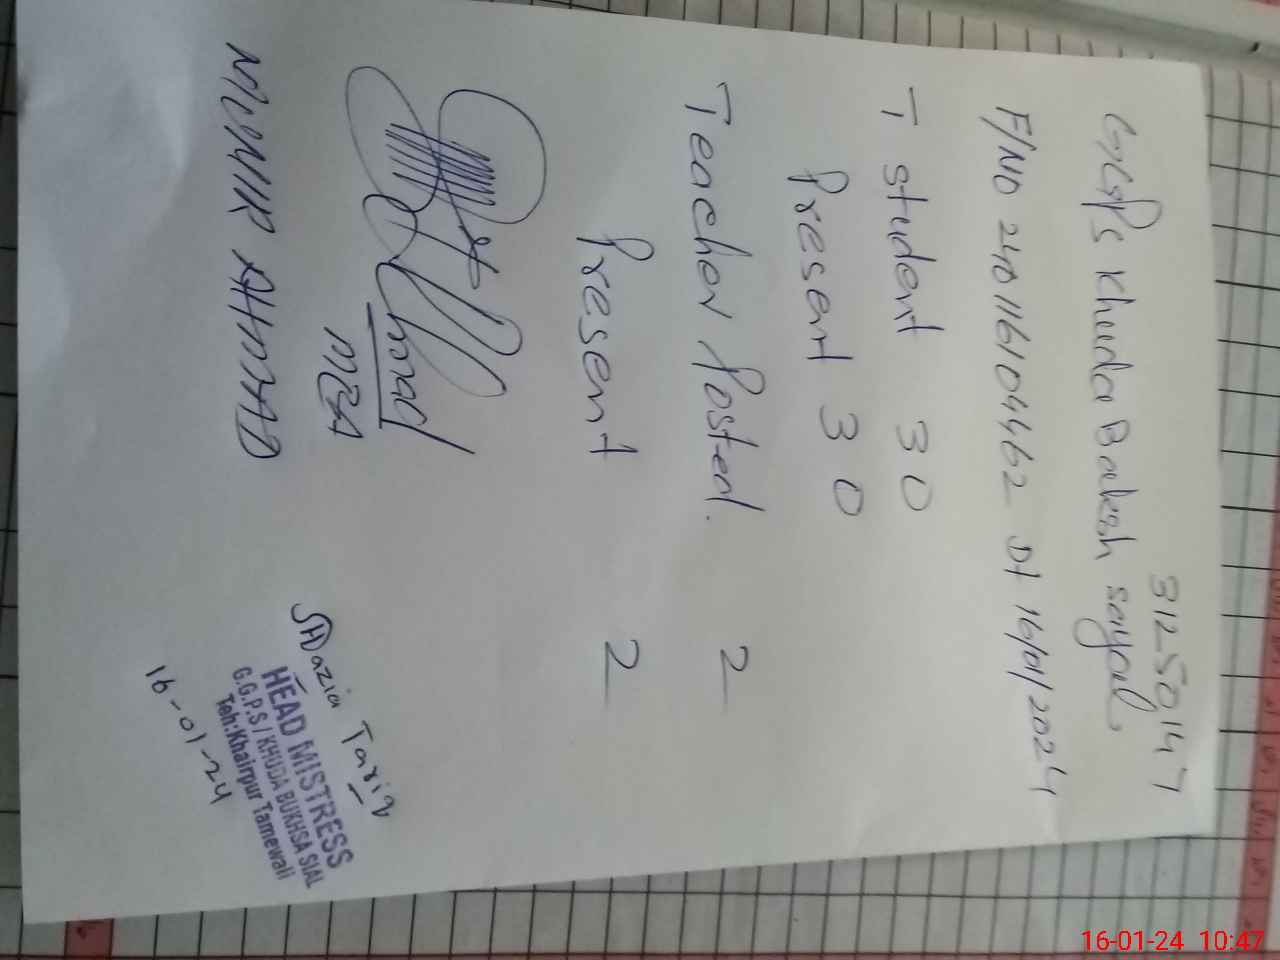 31250147
GGPS Khuda Bakesh sayal
F/NO 240116104462 Dt 16/01/2024
T student 30
Present 30
Teacher Posted. 2
Present 2
MEA
MUNIR AHMAD
Shazia Tariq
HEAD MISTRESS
G.G.P.S / KHUDA BUKHSA SIAL
Teh:Khairpur Tamewali
16-01-24
16-01-24 10:47